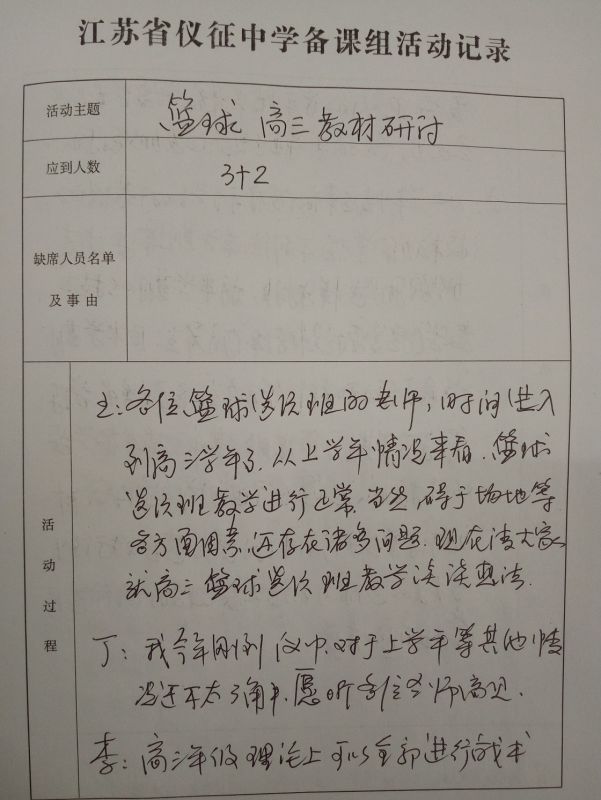 江苏省仪征中学备课组活动记录
活动主题
篮球 高三教材研讨
应到人数
3+2
缺席人员名单
及事由
活动过程
主:各位篮球选项班的老师,时间进入
到高三学年了.从上学年情况来看.篮球
选项班教学进行正常.当然,碍于场地等
各方面因素,还存在诸多问题.现在请大家
就高三篮球选项班教学谈谈想法.
丁:我今年刚到仪中,对于上学年等其他情
况还不太了解,愿听各位老师高见.
李:高三年级理论上可以全部进行战术